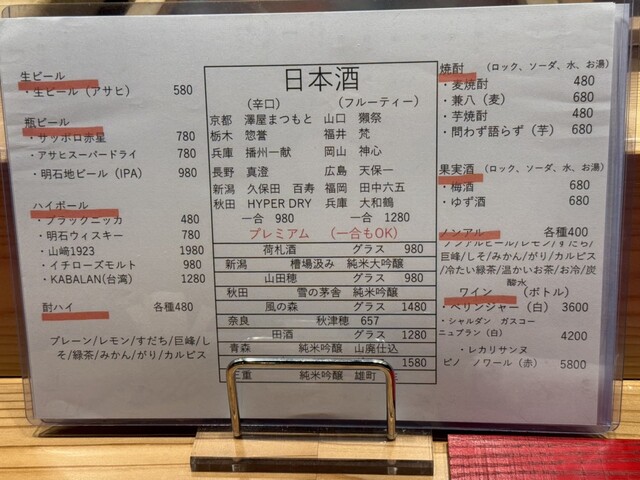 生ビール
・生ビール（アサヒ） 580
瓶ビール
・サッポロ赤星 780
・アサヒスーパードライ 780
・明石地ビール（IPA） 980
ハイボール
・ブラックニッカ 480
・明石ウィスキー 780
・山﨑1923 1980
・イチローズモルト 980
・KABALAN(台湾) 1280
酎ハイ 各種480
プレーン/レモン/すだち/巨峰/し
そ/緑茶/みかん/がり/カルピス
日本酒
（辛口） （フルーティー）
京都 澤屋まつもと 山口 獺祭
栃木 惣誉 福井 梵
兵庫 播州一献 岡山 神心
長野 真澄 広島 天保一
新潟 久保田 百寿 福岡 田中六五
秋田 HYPER DRY 兵庫 大和鶴
一合 980 一合 1280
プレミアム （一合もOK）
荷札酒 グラス 980
新潟 槽場汲み 純米大吟醸
山田穂 グラス 980
秋田 雪の茅舎 純米吟醸
風の森 グラス 1480
奈良 秋津穂 657
田酒 グラス 1280
青森 純米吟醸 山廃仕込
1580
三重 純米吟醸 雄町
焼酎 （ロック、ソーダ、水、お湯）
・麦焼酎 480
・兼八（麦） 680
・芋焼酎 480
・問わず語らず（芋） 680
果実酒 （ロック、ソーダ、水、お湯）
・梅酒 680
・ゆず酒 680
ノンアル 各種400
ノンアルビール/レモン/すだち/
巨峰/しそ/みかん/がり/カルピス
/冷たい緑茶/温かいお茶/お冷/炭
酸水
ワイン （ボトル）
・ベリンジャー（白） 3600
・シャルダン ガスコー
ニュブラン（白） 4200
・レカリサンヌ
ピノ ノワール（赤） 5800